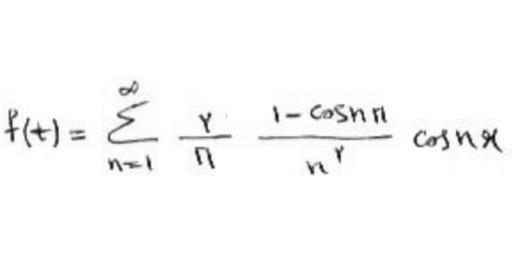 f(t) = \sum_{n=1}^{\infty} \frac{۲}{\pi} \frac{1 - \cos n\pi}{n^{۲}} \cos nx